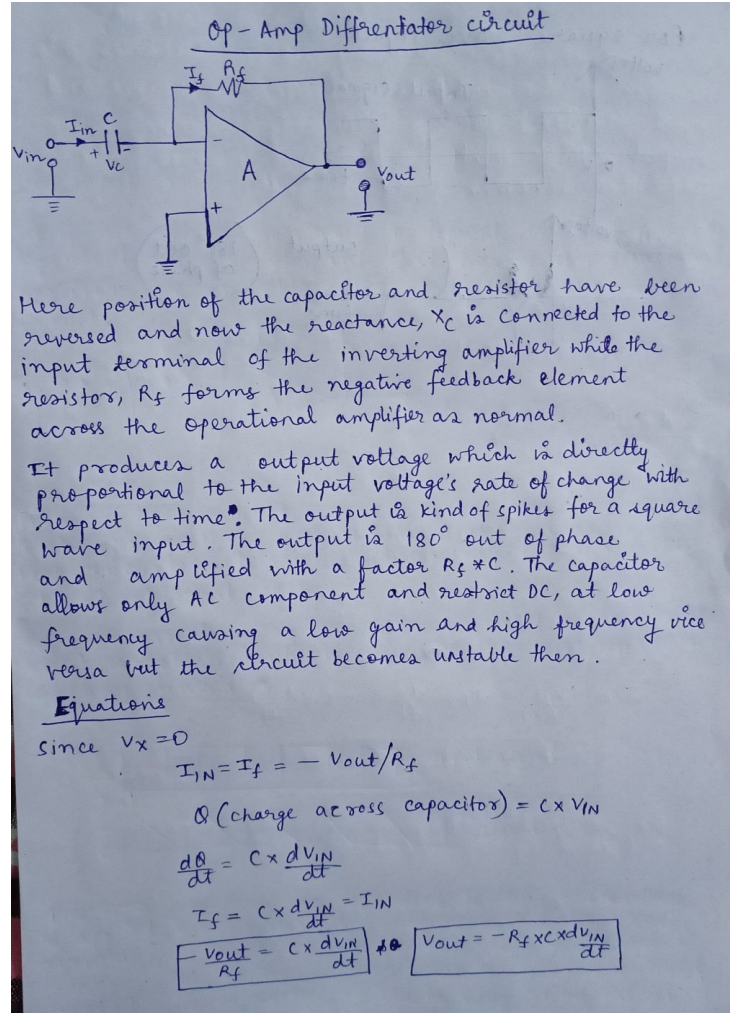 Op-Amp Diffrentator circuit
If Rf
Iin C
Vin
+ - 
Vc
-
A
+
Vout
Here position of the capacitor and resistor have been
reversed and now the reactance, Xc is connected to the
input terminal of the inverting amplifier while the
resistor, Rf forms the negative feedback element
across the operational amplifier as normal.
It produces a output voltage which is directly
proportional to the input voltage's rate of change with
respect to time. The output is kind of spikes for a square
wave input. The output is 180° out of phase
and amplified with a factor Rf *C. The capacitor
allows only AC component and restrict DC, at low
frequency causing a low gain and high frequency vice
versa but the circuit becomes unstable then.
Equations
since Vx=0
IIN = If = - Vout/Rf
Q (charge across capacitor) = C x VIN
dQ/dt = C x dVIN/dt
If = C x dVIN/dt = IIN
- Vout/Rf = C x dVIN/dt Vout = - Rf x C x dVIN/dt